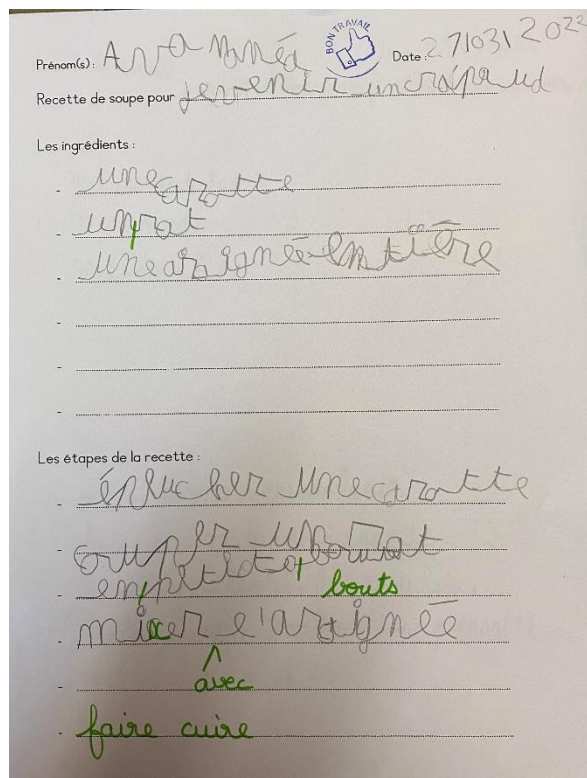 BON TRAVAIL
Prénom(s) : Ava Nunéa Date : 27/03/2022
Recette de soupe pour devenir un crapaud
Les ingrédients :
- une carotte
- un rat
- une araignée entière
-
-
-
Les étapes de la recette :
- éplucher une carotte
- couper un rat
en petit bouts
- mixer l'araignée
- avec
- faire cuire